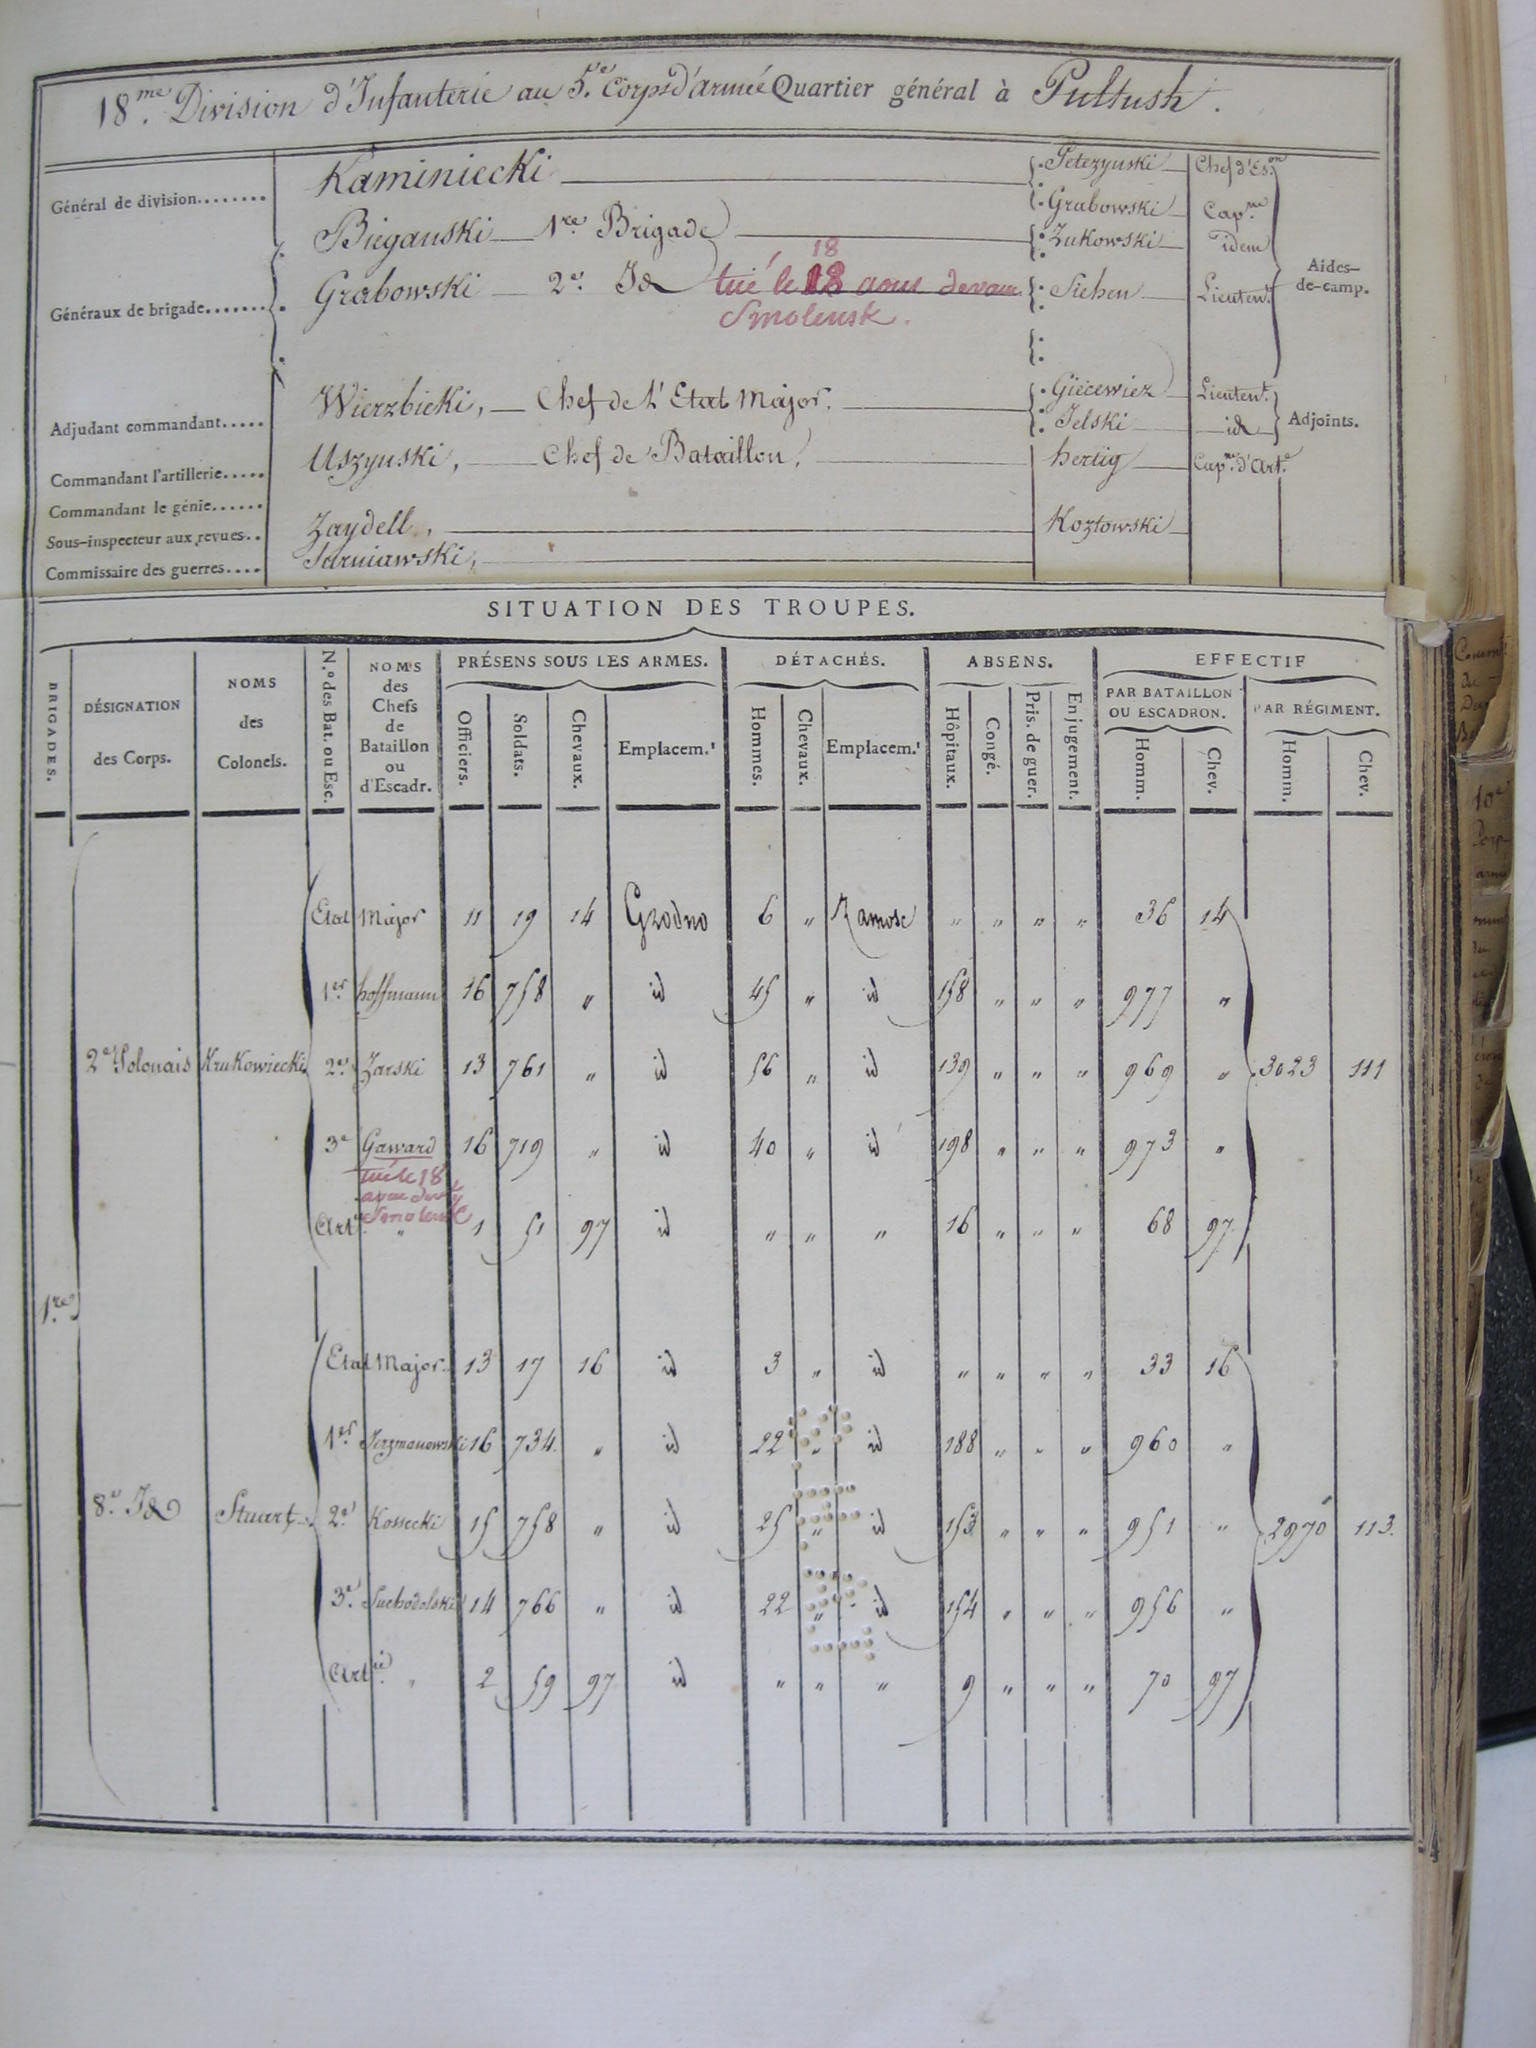 18.me Division d'Infanterie au 5.e Corps d'armée Quartier général à Pultusk.
Général de division........ Kaminiecki Chef d'Es.on
Grabowski Cap.ne
Bieganski 1re Brigade Zukowski idem
Généraux de brigade....... Grabowski 2.e Id tué le 18 18 aout devant Sichen Lieuten.t Aides-de-camp.
Smolensk.
Adjudant commandant..... Wierzbicki, Chef de l'Etat Major. Giecewiez Lieuten.t
Jelski id Adjoints.
Commandant l'artillerie..... Uszynski, Chef de Bataillon, hertig Cap.ne d'Art.e
Commandant le génie......
Sous-inspecteur aux revues.. Zaydell, Kozlowski
Commissaire des guerres.... Tarniawski,
SITUATION DES TROUPES.
BRIGADES. DÉSIGNATION des Corps. NOMS des Colonels. N.º des Bat. ou Esc. NOMS des Chefs de Bataillon ou d'Escadr. PRÉSENS SOUS LES ARMES. DÉTACHÉS. ABSENS. EFFECTIF
PAR BATAILLON OU ESCADRON. PAR RÉGIMENT.
Officiers. Soldats. Chevaux. Emplacem.t Hommes. Chevaux. Emplacem.t Hôpitaux. Congé. Pris. de guer. En jugement. Homm. Chev. Homm. Chev.
Etat Major 11 19 14 Grodno 6 " Zamosc " " " " 36 14
1er hoffmann 16 758 " id 45 " id 158 " " " 977 "
2e Polonais Krukowiecki 2e Zarski 13 761 " id 56 " id 139 " " " 969 " 3023 111
3e Gaward 16 719 " id 40 " id 198 " " " 973 "
tué le 18
Smolensk
Art. " 1 51 97 id " " " 16 " " " 68 97
1.re
Etat Major. 13 17 16 id 3 " id " " " " 33 16
1er Jerzmanowski 16 734. " id 22 " id 188 " " " 960 "
8.e Id Stuart 2e Kossecki 15 758 " id 25 " id 153 " " " 951 " 2970 113.
3e. Suchodolski 14 766 " id 22 " id 154 " " " 956 "
Art.ie " 2 59 97 id " " " 9 " " " 70 97